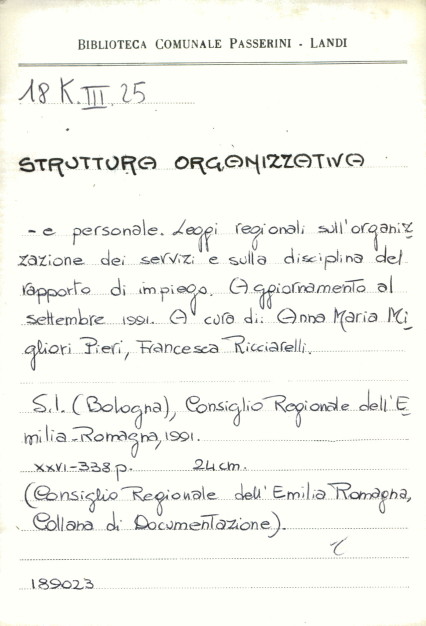 BIBLIOTECA COMUNALE PASSERINI - LANDI
18 K. III. 25
STRUTTURA ORGANIZZATIVA
- e personale. Leggi regionali sull'organiz
zazione dei servizi e sulla disciplina del
rapporto di impiego. Aggiornamento al
settembre 1991. A cura di: Anna Maria Mi
gliori Pieri, Francesca Ricciarelli.
S.l. (Bologna), Consiglio Regionale dell'E
milia-Romagna, 1991.
XXVI-338 p. 24 cm.
(Consiglio Regionale dell'Emilia Romagna,
Collana di Documentazione).
189023